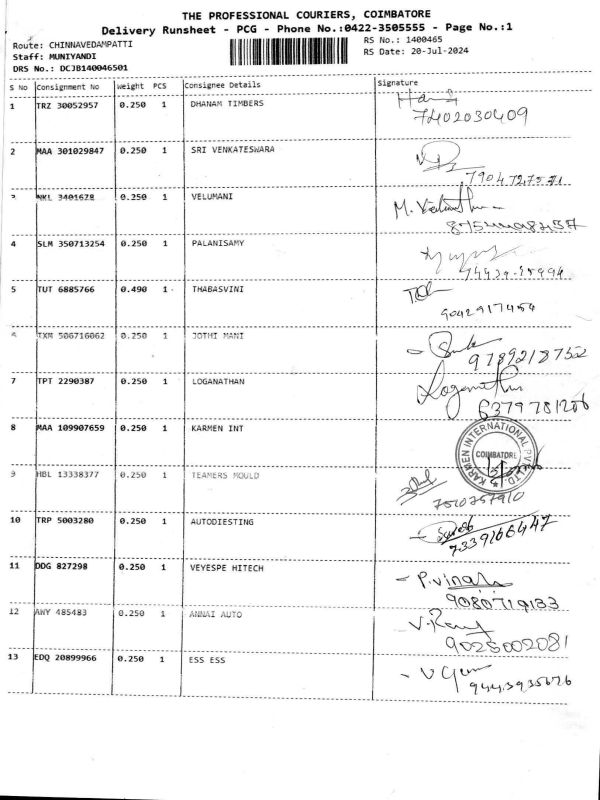 THE PROFESSIONAL COURIERS, COIMBATORE
Delivery Runsheet - PCG - Phone No.:0422-3505555 - Page No.:1
Route: CHINNAVEDAMPATTI RS No.: 1400465
Staff: MUNIYANDI RS Date: 20-Jul-2024
DRS No.: DCJB140046501
S No Consignment No Weight PCS Consignee Details Signature
1 TRZ 30052957 0.250 1 DHANAM TIMBERS
7402030409
2 MAA 301029847 0.250 1 SRI VENKATESWARA
3 NKL 3401678 0.250 1 VELUMANI
4 SLM 350713254 0.250 1 PALANISAMY
5 TUT 6885766 0.490 1 THABASVINI
9042917454
6 TXM 506716062 0.250 1 JOTHI MANI
9789218752
7 TPT 2290387 0.250 1 LOGANATHAN Loganathan
6379781206
8 MAA 109907659 0.250 1 KARMEN INT
KARMEN INTERNATIONAL PVT. LTD.
COIMBATORE
9 HBL 13338377 0.250 1 TEAMERS MOULD
7510757910
10 TRP 5003280 0.250 1 AUTODIESTING
7339166447
11 DDG 827298 0.250 1 VEYESPE HITECH - P.vinah
9080719133
12 AWY 485483 0.250 1 ANNAI AUTO
9025002081
13 EDQ 20899966 0.250 1 ESS ESS
9443935676